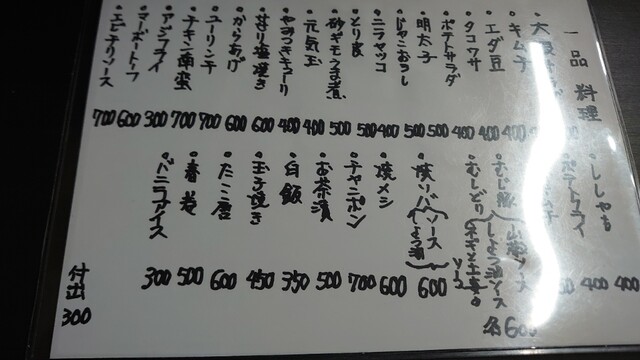 一品料理
・キムチ 400
・エダ豆 400
・タコワサ 400
・ポテトサラダ 500
・明太子 500
・じゃこおろし 400
・ニラヤッコ 400
・とり皮 500
・砂ギモうま煮 500
・元気玉 400
・やみつきキューリ 400
・せせり塩焼き 600
・からあげ 600
・ユーリンチ 700
・チキン南蛮 700
・アジフライ 300
・マーボートーフ 600
・エビチリソース 700
・ししゃも 400
・ポテトフライ 400
・むし豚
・むしどり
しょう油ソース
ネギと土生姜の
ソース
各600
・焼ソバ ソース しょう油 600
・焼メシ 600
・チャンポン 700
・お茶漬 500
・白飯 350
・玉子焼き 450
・たこ唐 600
・春巻 500
・バニラアイス 300
付出 300